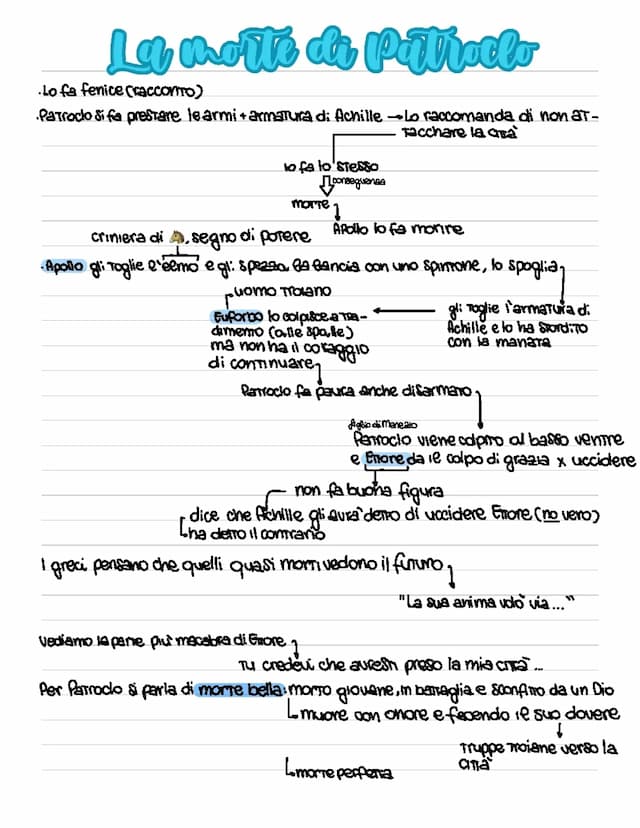 La morte di Patroclo
·Lo fa fenice (racconto)
·Patroclo si fa prestare le armi + armatura di Achille → Lo raccomanda di non at-
tacchare la città
lo fa lo stesso
conseguenza
morte
Apollo lo fa morire
criniera di 🐴, segno di potere
·Apollo gli toglie l'elmo e gli spezza la lancia con uno spintone, lo spoglia
uomo troiano
Euforbo lo colpisce a tra-
dimento (alle spalle)
ma non ha il coraggio
di continuare
gli toglie l'armatura di
Achille e lo ha stordito
con la manata
Patroclo fa paura anche disarmato
figlio di Menezio
Patroclo viene colpito al basso ventre
e Ettore da il colpo di grazia x uccidere
non fa buona figura
dice che Achille gli avrà detto di uccidere Ettore (no vero)
ha detto il contrario
I greci pensano che quelli quasi morti vedono il futuro
"La sua anima volò via..."
Vediamo la parte più macabra di Ettore
Tu credevi che avresti preso la mia città...
Per Patroclo si parla di morte bella: morto giovane, in battaglia e sconfitto da un Dio
muore con onore e facendo il suo dovere
truppe troiane verso la
città
morte perfetta